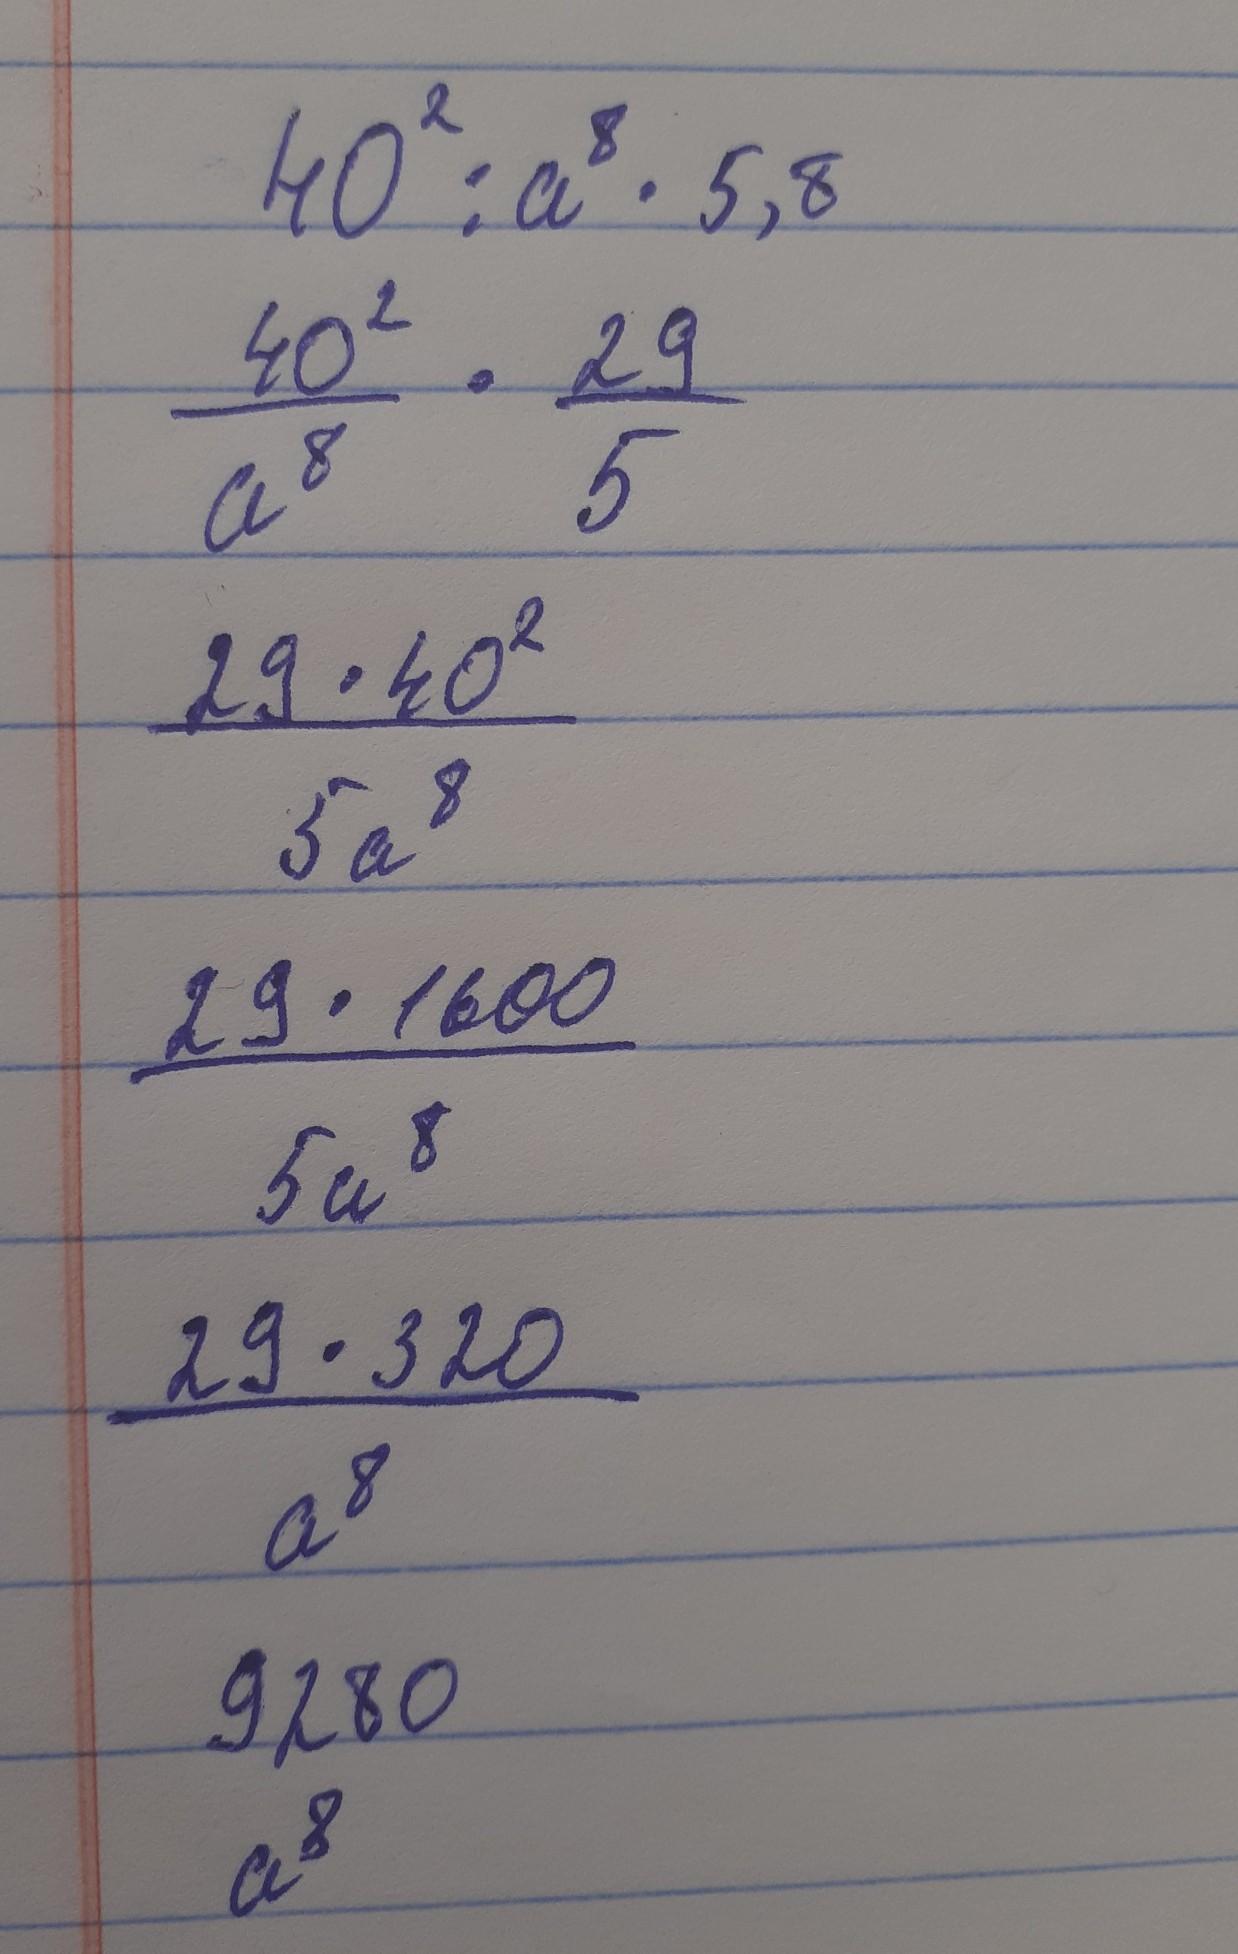 40² : a⁸ · 5,8
40² / a⁸ · 29 / 5
29 · 40² / 5a⁸
29 · 1600 / 5a⁸
29 · 320 / a⁸
9280
a⁸